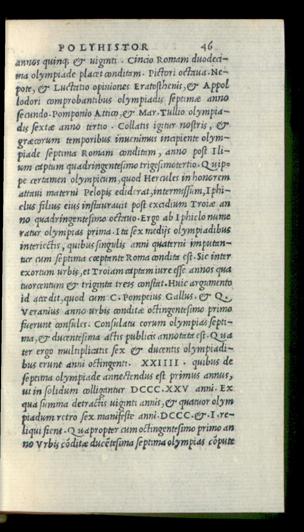 POLYHISTOR 46
annos quinq; & uiginti. Cincio Romam duodeci-
ma olympiade placet conditam. Pictori octaua. Ne-
pote, & Luctatio opiniones Eratosthenis, & Appol
lodori comprobantibus olympiadis septimæ anno
secundo. Pomponio Attico, & Mar. Tullio olympia-
dis sextæ anno tertio. Collatis igitur nostris, &
græcorum temporibus inuenimus incipiente olym-
piade septima Romam conditam, anno post Ili-
um captum quadringentesimo trigesimotertio. Quip-
pe certamen olympicum, quod Hercules in honorem
attaui materni Pelopis ediderat, intermissum, Iphi-
clus filius eius instaurauit post excidium Troiæ an
no quadringentesimo octauo. Ergo ab Iphiclo nume
ratur olympias prima. Ita sex medijs olympiadibus
interiectis, quibus singulis anni quaterni imputan-
tur cum septima cœptante Roma condita est. Sic inter
exortum urbis, et Troiam captam iure esse annos qua
tuorcentum & triginta treis constat. Huic argumento
id accedit, quod cum C. Pompeius Gallus. & Q.
Veranius anno urbis conditæ octingentesimo primo
fuerunt consules. Consulatu eorum olympias septi-
ma, & ducentesima actis publicis annotata est. Qua
ter ergo multiplicatis sex & ducentis olympiadi-
bus erunt anni octingenti. XXIIII. quibus de
septima olympiade annectendus est primus annus,
ut in solidum colligantur DCCC.XXV anni. Ex
qua summa detractis uiginti annis, & quatuor olym
piadum retro sex manifeste anni. DCCC. & .I. re-
liqui fient. Quapropter cum octingentesimo primo an
no Vrbis códitæ ducētesima septima olympias cópute